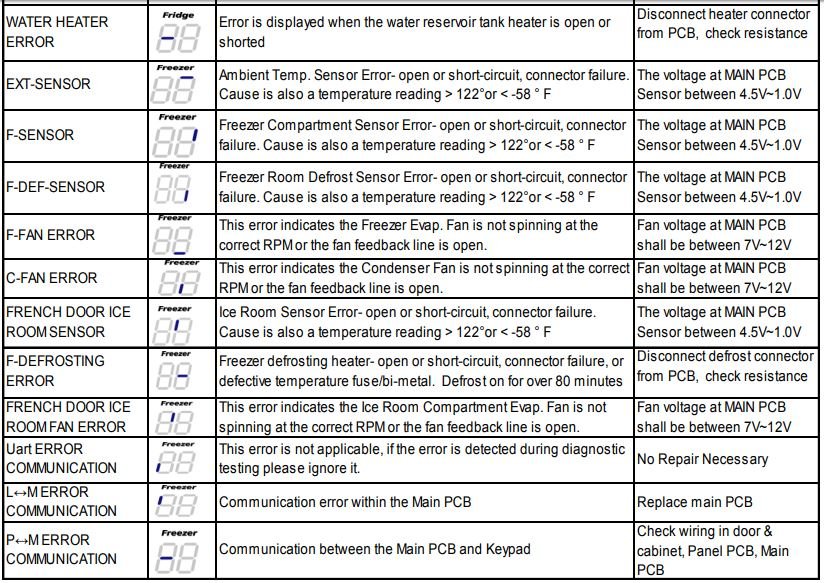 WATER HEATER
ERROR
Fridge
Error is displayed when the water reservoir tank heater is open or
shorted
Disconnect heater connector
from PCB, check resistance
EXT-SENSOR
Freezer
Ambient Temp. Sensor Error- open or short-circuit, connector failure.
Cause is also a temperature reading > 122°or < -58 ° F
The voltage at MAIN PCB
Sensor between 4.5V~1.0V
F-SENSOR
Freezer
Freezer Compartment Sensor Error- open or short-circuit, connector
failure. Cause is also a temperature reading > 122°or < -58 ° F
The voltage at MAIN PCB
Sensor between 4.5V~1.0V
F-DEF-SENSOR
Freezer
Freezer Room Defrost Sensor Error- open or short-circuit, connector
failure. Cause is also a temperature reading > 122°or < -58 ° F
The voltage at MAIN PCB
Sensor between 4.5V~1.0V
F-FAN ERROR
Freezer
This error indicates the Freezer Evap. Fan is not spinning at the
correct RPM or the fan feedback line is open.
Fan voltage at MAIN PCB
shall be between 7V~12V
C-FAN ERROR
Freezer
This error indicates the Condenser Fan is not spinning at the correct
RPM or the fan feedback line is open.
Fan voltage at MAIN PCB
shall be between 7V~12V
FRENCH DOOR ICE
ROOM SENSOR
Freezer
Ice Room Sensor Error- open or short-circuit, connector failure.
Cause is also a temperature reading > 122°or < -58 ° F
The voltage at MAIN PCB
Sensor between 4.5V~1.0V
F-DEFROSTING
ERROR
Freezer
Freezer defrosting heater- open or short-circuit, connector failure, or
defective temperature fuse/bi-metal. Defrost on for over 80 minutes
Disconnect defrost connector
from PCB, check resistance
FRENCH DOOR ICE
ROOM FAN ERROR
Freezer
This error indicates the Ice Room Compartment Evap. Fan is not
spinning at the correct RPM or the fan feedback line is open.
Fan voltage at MAIN PCB
shall be between 7V~12V
Uart ERROR
COMMUNICATION
Freezer
This error is not applicable, if the error is detected during diagnostic
testing please ignore it.
No Repair Necessary
L↔M ERROR
COMMUNICATION
Freezer
Communication error within the Main PCB
Replace main PCB
P↔M ERROR
COMMUNICATION
Freezer
Communication between the Main PCB and Keypad
Check wiring in door &
cabinet, Panel PCB, Main
PCB